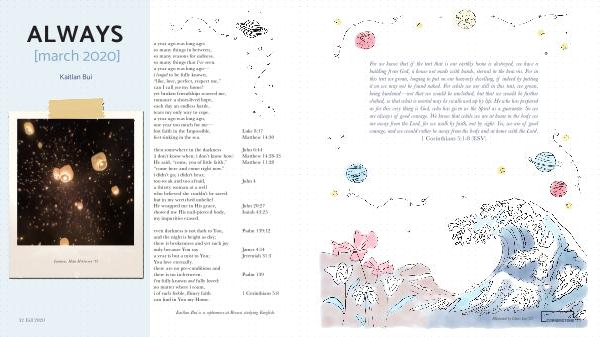 ALWAYS
[march 2020]
Kaitlan Bui
a year ago was long ago,
so many things in between,
so many reasons for sadness,
so many things that i've seen.
a year ago was long ago—
i hoped to be fully known,
"like, love, perfect, respect me,"
can I call you my home?
yet broken friendships scarred me,
summer a short-lived hope,
each day an endless battle,
tears my only way to cope.
a year ago was long ago,
one year too much for me—
but faith in the Impossible,
Luke 8:17
feet sinking in the sea.
Matthew 14:30
then somewhere in the darkness
John 6:44
I don't know when, i don't know how
Matthew 14:28-33
He said, "come, you of little faith,"
Matthew 11:28
"come here and come right now."
i didn't go, i didn't hear,
too weak and too afraid,
John 4
a thirsty woman at a well
who believed she couldn't be saved.
but in my wretched unbelief
He wrapped me in His grace,
John 20:27
showed me His nail-pierced body,
Isaiah 43:25
my impurities erased.
even darkness is not dark to You,
Psalm 139:12
and the night is bright as day,
there is brokenness and yet such joy
only because You say
James 4:14
a year is but a mist to You;
Jeremiah 31:3
You love eternally.
there are no pre-conditions and
there is no in-between.
Psalm 139
i'm fully known and fully loved:
no matter where I roam,
i of such feeble, flimsy faith
1 Corinthians 5:8
can find in You my Home.
Kaitlan Bui is a sophomore at Brown studying English.
32 Fall 2020
For we know that if the tent that is our earthly home is destroyed, we have a
building from God, a house not made with hands, eternal in the heavens. For in
this tent we groan, longing to put on our heavenly dwelling, if indeed by putting
it on we may not be found naked. For while we are still in this tent, we groan,
being burdened—not that we would be unclothed, but that we would be further
clothed, so that what is mortal may be swallowed up by life. He who has prepared
us for this very thing is God, who has given us the Spirit as a guarantee. So we
are always of good courage. We know that while we are at home in the body we
are away from the Lord, for we walk by faith, not by sight. Yes, we are of good
courage, and we would rather be away from the body and at home with the Lord.